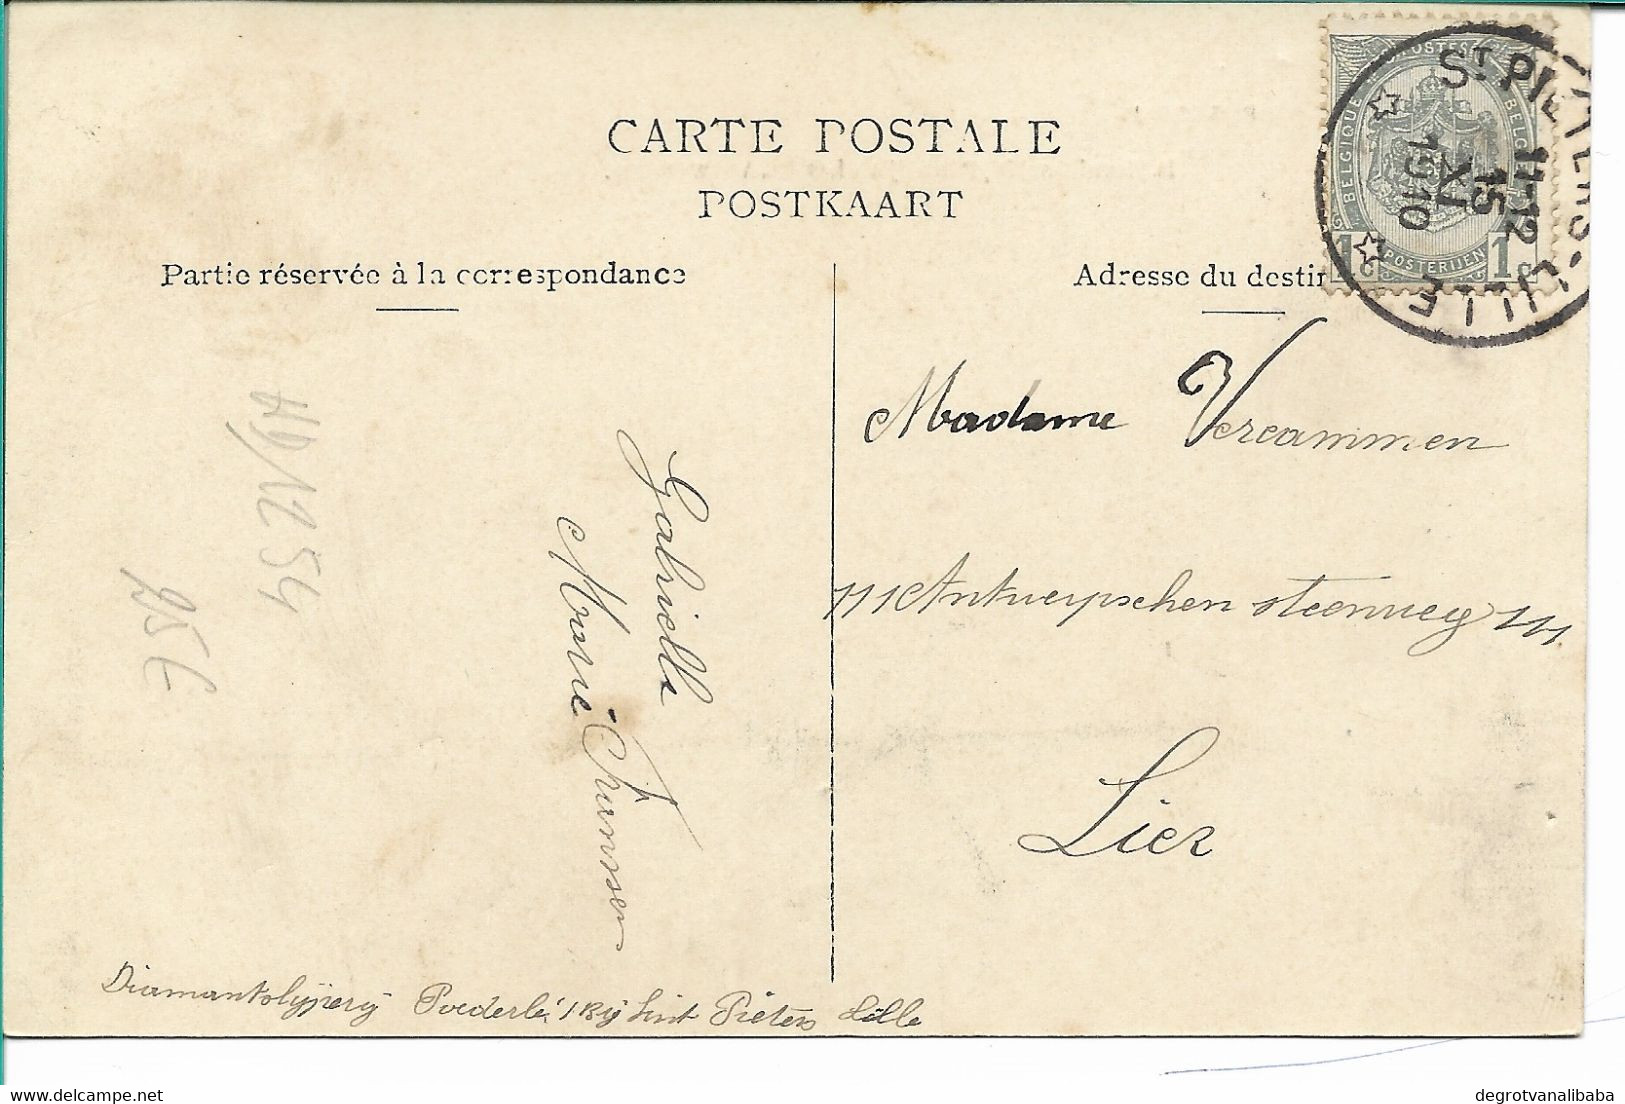 CARTE POSTALE
POSTKAART
Partie réservée à la correspondance
Adresse du destin
POSTES
BELGIQUE
BELGIE
POSTERIJEN
1c
1c
ST PIETERS-LILLE
11-12
15
XI
1910
Madame Vercammen
111 Antwerpschen steenweg 111
Lier
Gabrielle
Marie
HD/1254
25€
Diamantslijperij Poederlé / Bij Sint Pieters Lille
degrotvanalibaba